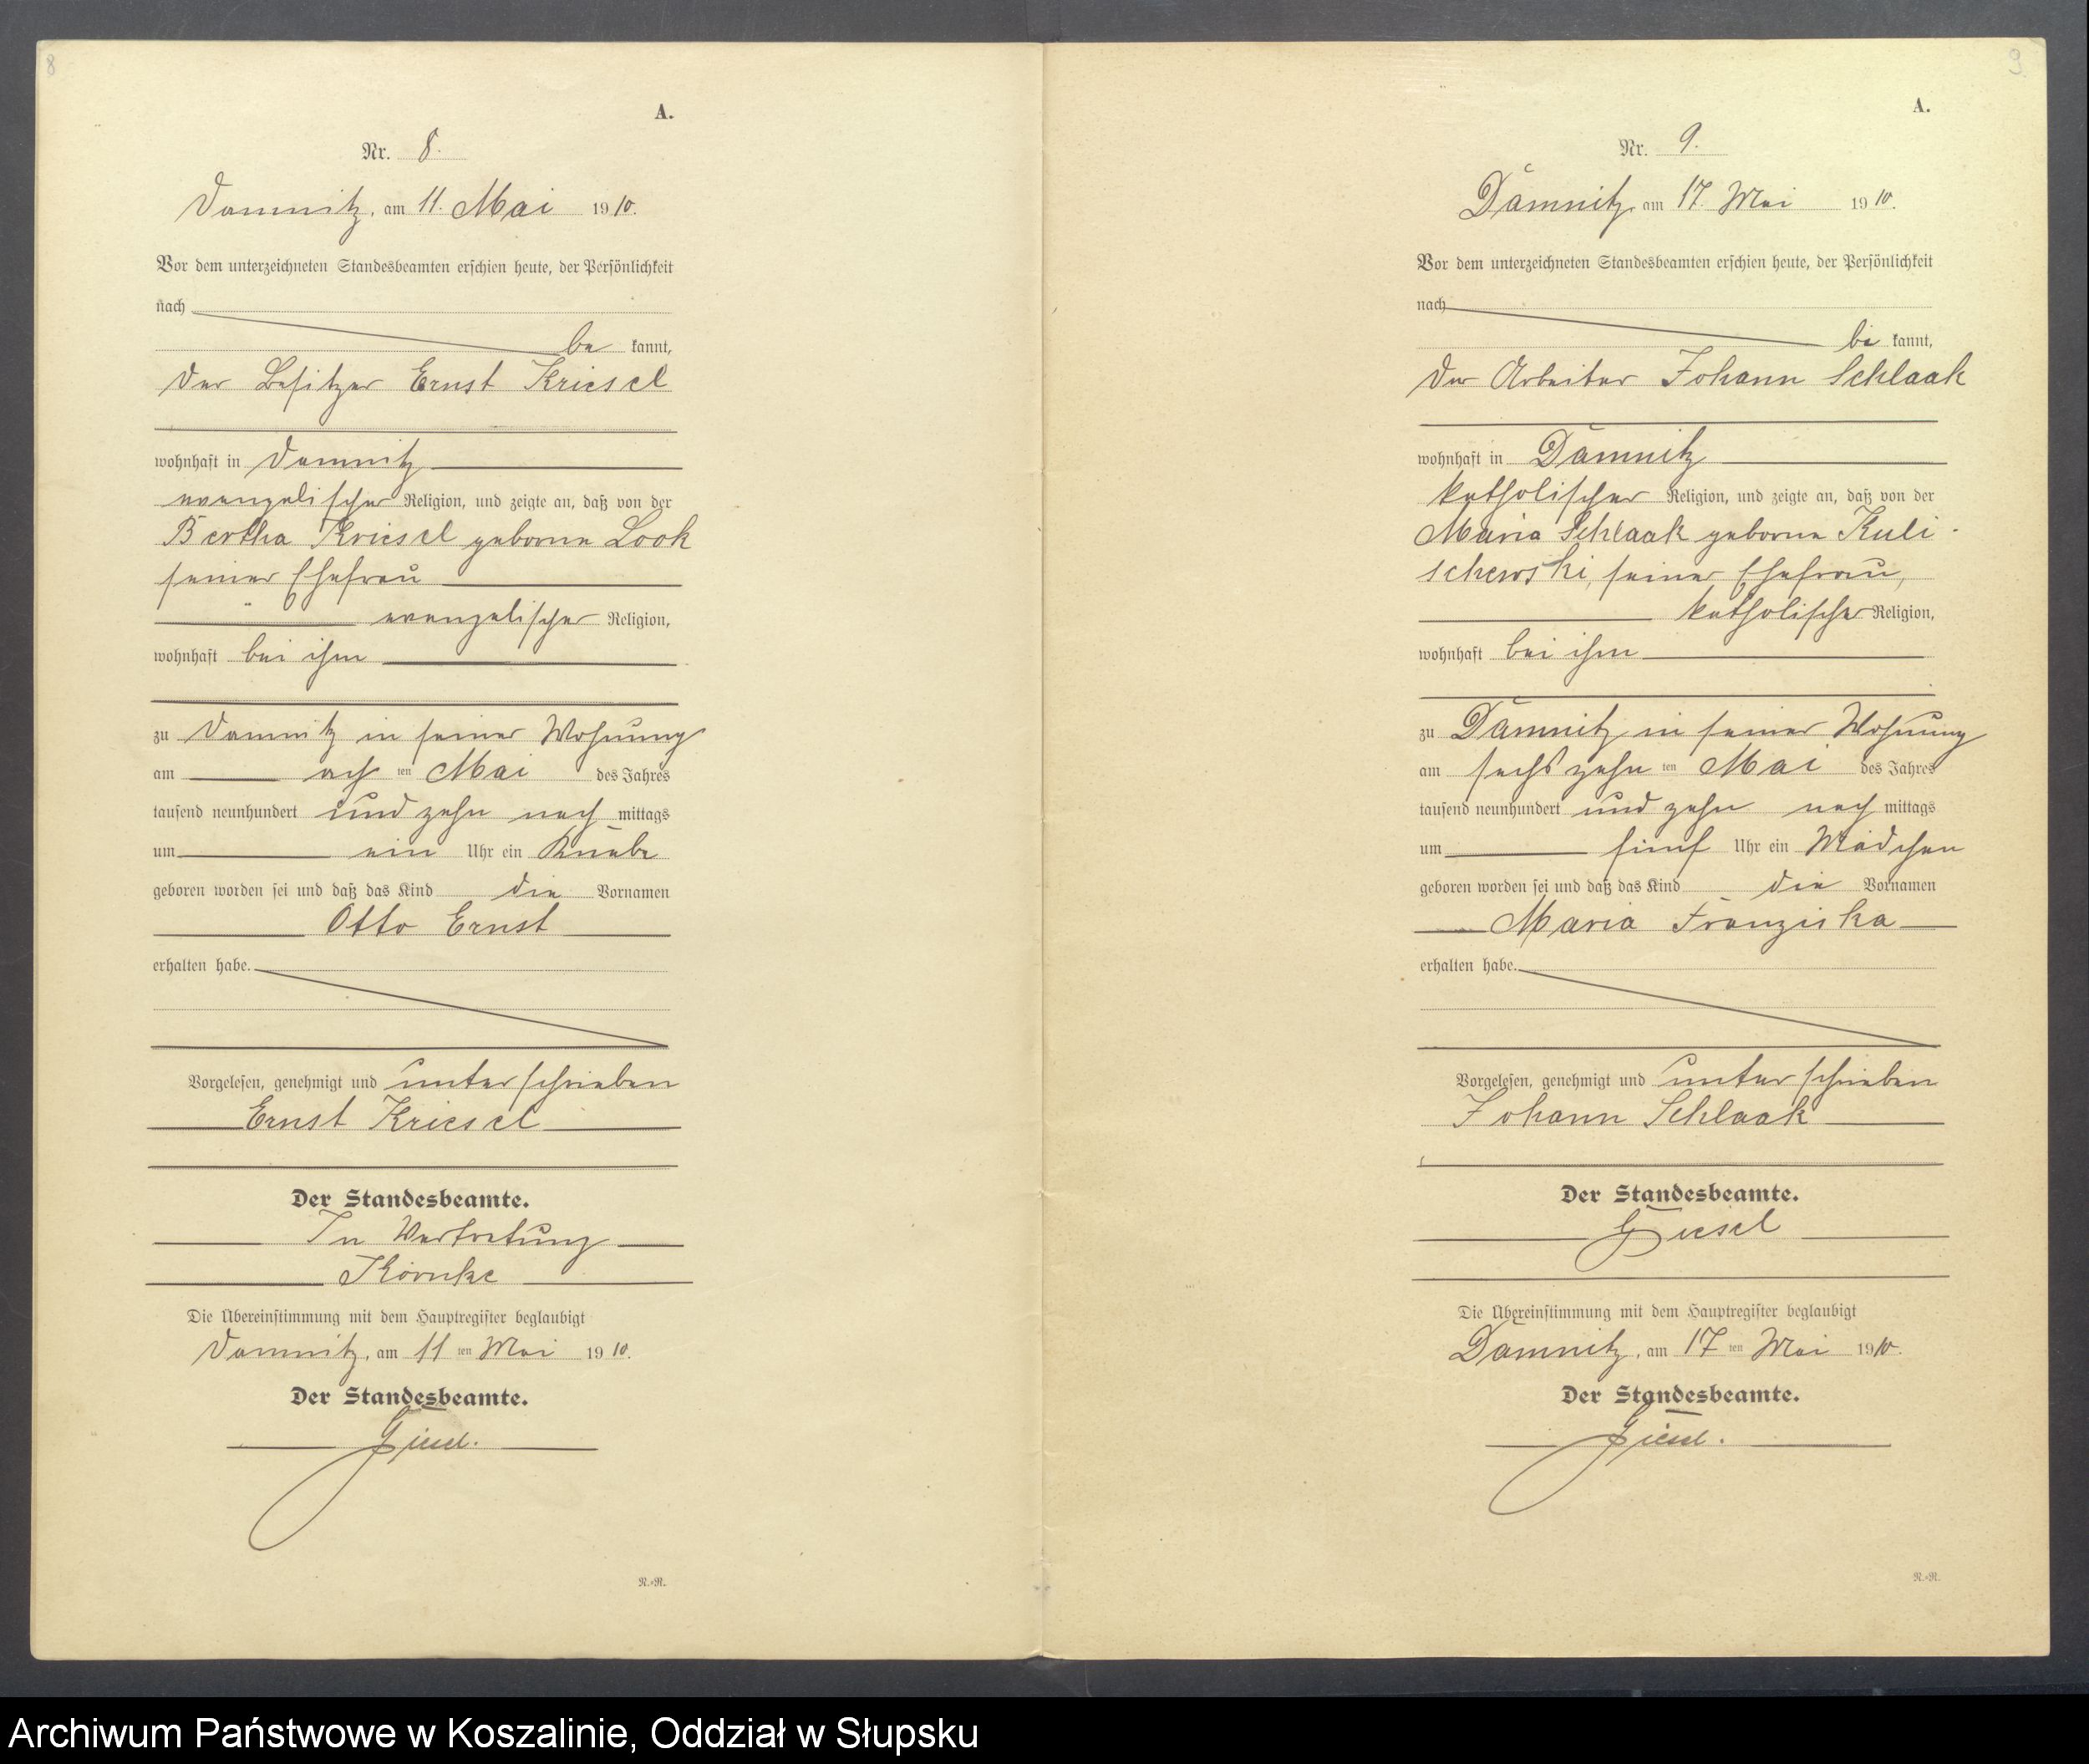 8
A.
Nr. 8.
Damnitz, am 11. Mai 1910.
Vor dem unterzeichneten Standesbeamten erschien heute, der Persönlichkeit
nach
be kannt,
der Besitzer Ernst Kriesel
wohnhaft in Damnitz
evangelischer Religion, und zeigte an, daß von der
Bertha Kriesel geborne Look
seiner Ehefrau
evangelischer Religion,
wohnhaft bei ihm
zu Damnitz in seiner Wohnung
am ach ten Mai des Jahres
tausend neunhundert und zehn nach mittags
um ein Uhr ein Knabe
geboren worden sei und daß das Kind die Vornamen
Otto Ernst
erhalten habe.
Vorgelesen, genehmigt und unterschrieben
Ernst Kriesel
Der Standesbeamte.
In Vertretung
Die Übereinstimmung mit dem Hauptregister beglaubigt
Damnitz, am 11 ten Mai 1910.
Der Standesbeamte.
Giesel.
N.-N.
9
A.
Nr. 9.
Damnitz, am 17. Mai 1910.
Vor dem unterzeichneten Standesbeamten erschien heute, der Persönlichkeit
nach
be kannt,
der Arbeiter Johann Schlaak
wohnhaft in Damnitz
katholischer Religion, und zeigte an, daß von der
Maria Schlaak geborne Kuli-
schewski, seiner Ehefrau,
katholischer Religion,
wohnhaft bei ihm
zu Damnitz in seiner Wohnung
am sechszehn ten Mai des Jahres
tausend neunhundert und zehn nach mittags
um fünf Uhr ein Mädchen
geboren worden sei und daß das Kind die Vornamen
Maria Franziska
erhalten habe.
Vorgelesen, genehmigt und unterschrieben
Johann Schlaak
Der Standesbeamte.
Giesel
Die Übereinstimmung mit dem Hauptregister beglaubigt
Damnitz, am 17 ten Mai 1910.
Der Standesbeamte.
Giesel.
N.-N.
Archiwum Państwowe w Koszalinie, Oddział w Słupsku